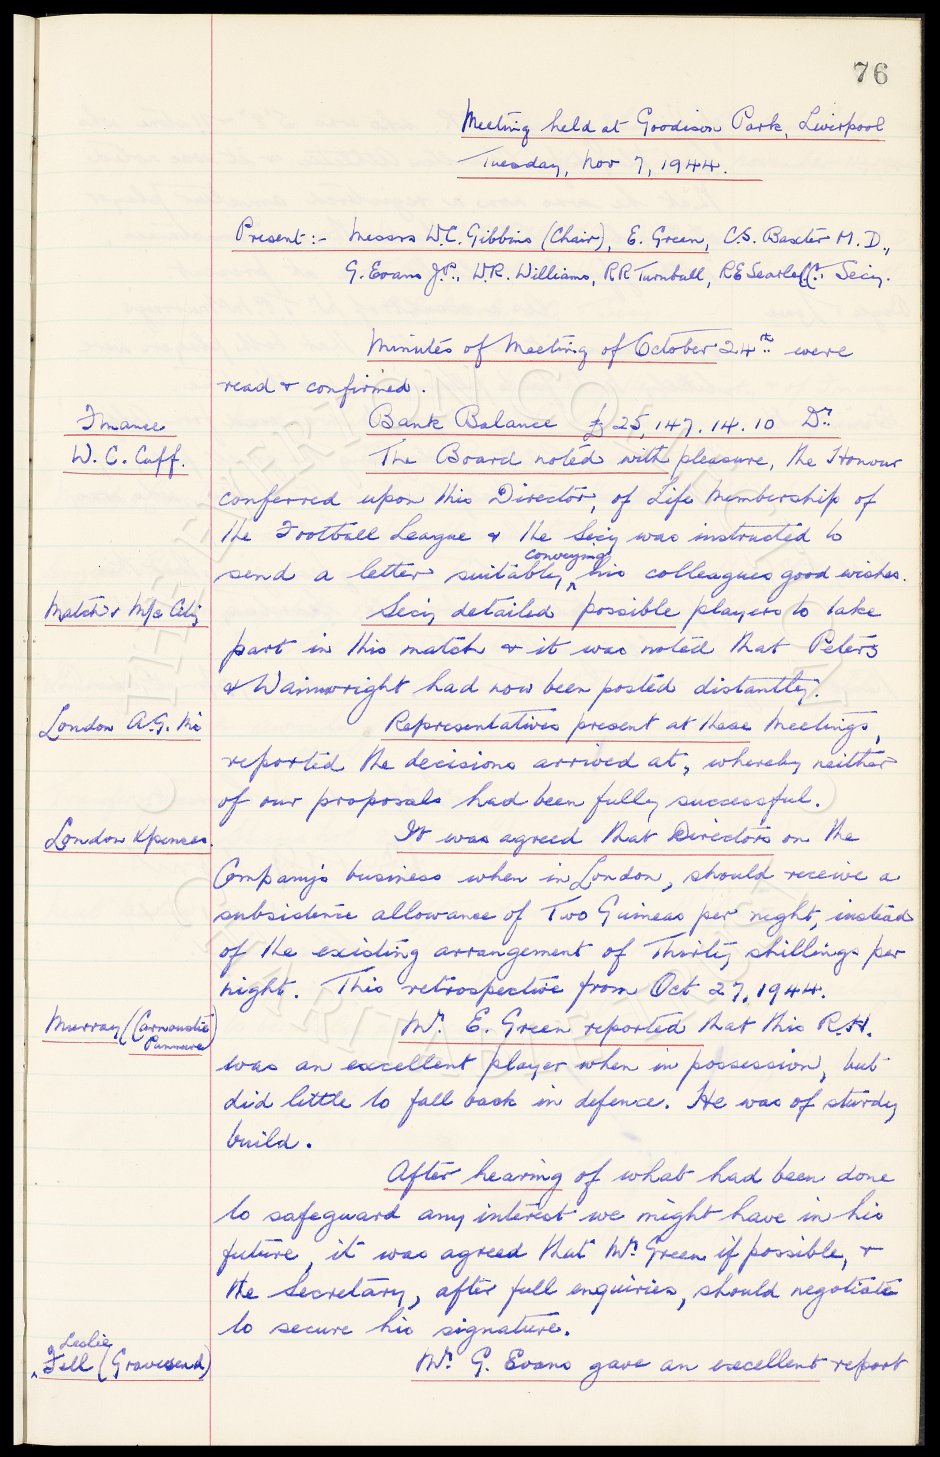 76
Meeting held at Goodison Park, Liverpool
Tuesday, Nov 7, 1944.
Present:- Messrs W.C. Gibbins (Chair), E. Green, C.S. Baxter M.D.,
G. Evans J.P., W.R. Williams, R R Turnbull, R E Searle Secy.
Minutes of Meeting of October 24th were
read & confirmed.
Finance Bank Balance £25,147.14.10 Dr
W. C. Cuff. The Board noted with pleasure, the Honour
conferred upon this Director, of Life Membership of
the Football League & the Secy was instructed to
send a letter suitably, conveying his colleagues good wishes.
Match v M/c City Secy detailed possible players to take
part in this match & it was noted that Peters
& Wainwright had now been posted distantly.
London A.G. Representatives present at these Meetings,
reported the decisions arrived at, whereby neither
of our proposals had been fully successful.
London Xpenses. It was agreed that Directors on the
Company's business when in London, should receive a
subsistence allowance of Two Guineas per night, instead
of the existing arrangement of Thirty shillings per
night. This retrospective from Oct 27, 1944.
Murray (Carnoustie Panmure) Mr. E. Green reported that this R.H.
was an excellent player when in possession, but
did little to fall back in defence. He was of sturdy
build.
After hearing of what had been done
to safeguard any interest we might have in his
future, it was agreed that Mr Green if possible, &
the Secretary, after full enquiries, should negotiate
to secure his signature.
Leslie Fell (Gravesend) Mr. G. Evans gave an excellent report
THE EVERTON COLLECTION CHARITABLE TRUST